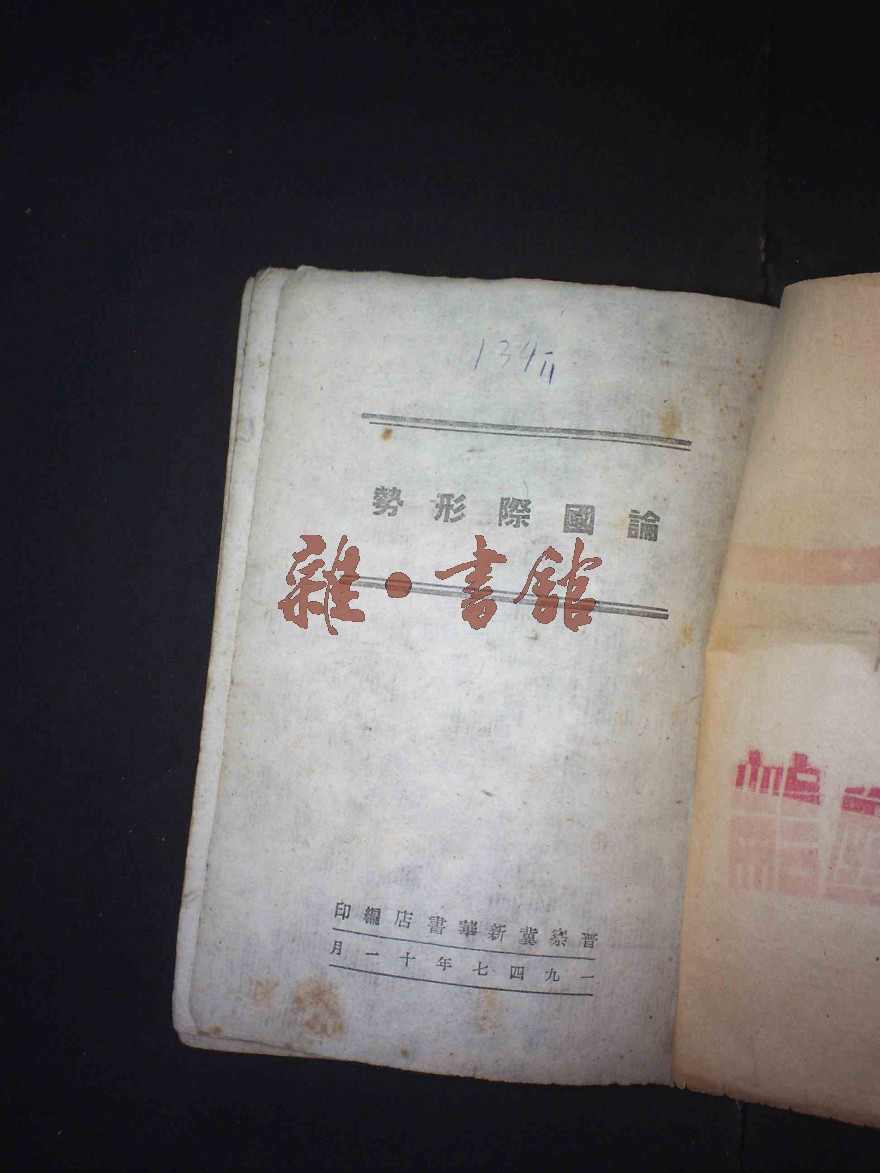 134 11
論國際形勢
雜·書館
晋察冀新華書店編印
一九四七年十一月